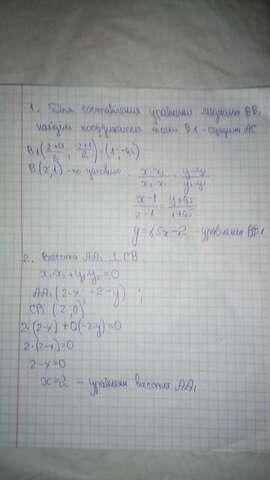 1. Для составления уравнения медианы BB₁
найдём координаты точки B₁ - середины AC
B₁(2+0/2; -2+1/2) = (1; -0,5)
B(2,1) - по условию. x-x₁/x₂-x₁ = y-y₁/y₂-y₁
x-1/2-1 = y+0,5/1+0,5
y=1,5x-2 - уравнение BB₁
2. Высота AA₁ ⊥ CB
x₁·x₂+y₁y₂=0
AA₁(2-x; -2-y);
CB(2;0)
2·(2-x)+0(-2-y)=0
2·(2-x)=0
2-x=0
x=2 - уравнение высоты AA₁